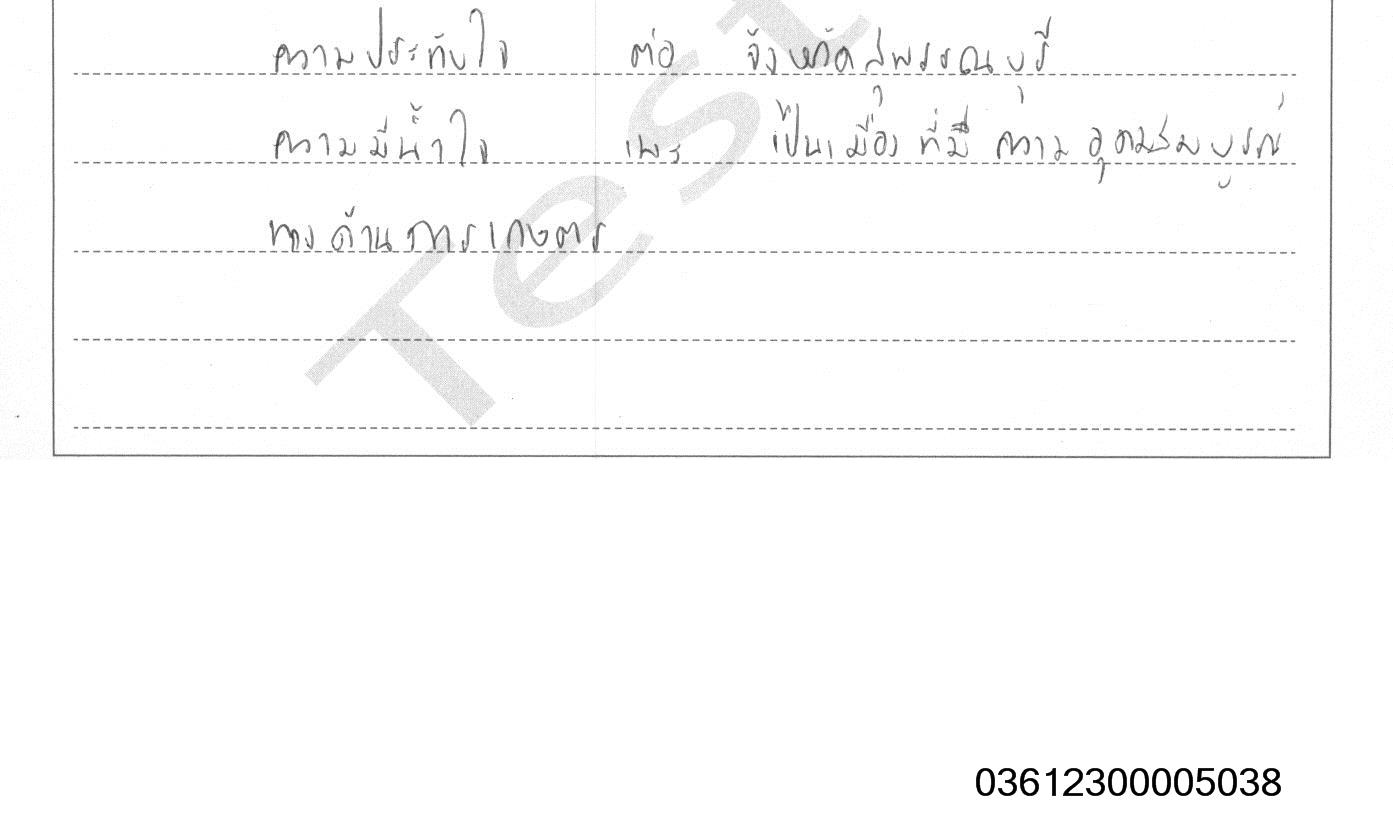 ความประทับใจ ต่อ จังหวัดสุพรรณบุรี
ความมีน้ำใจ เพระ เป็นเมือง ที่มี ความ อุดมสมบูรณ์
ทางด้านการเกษตร
Test
03612300005038